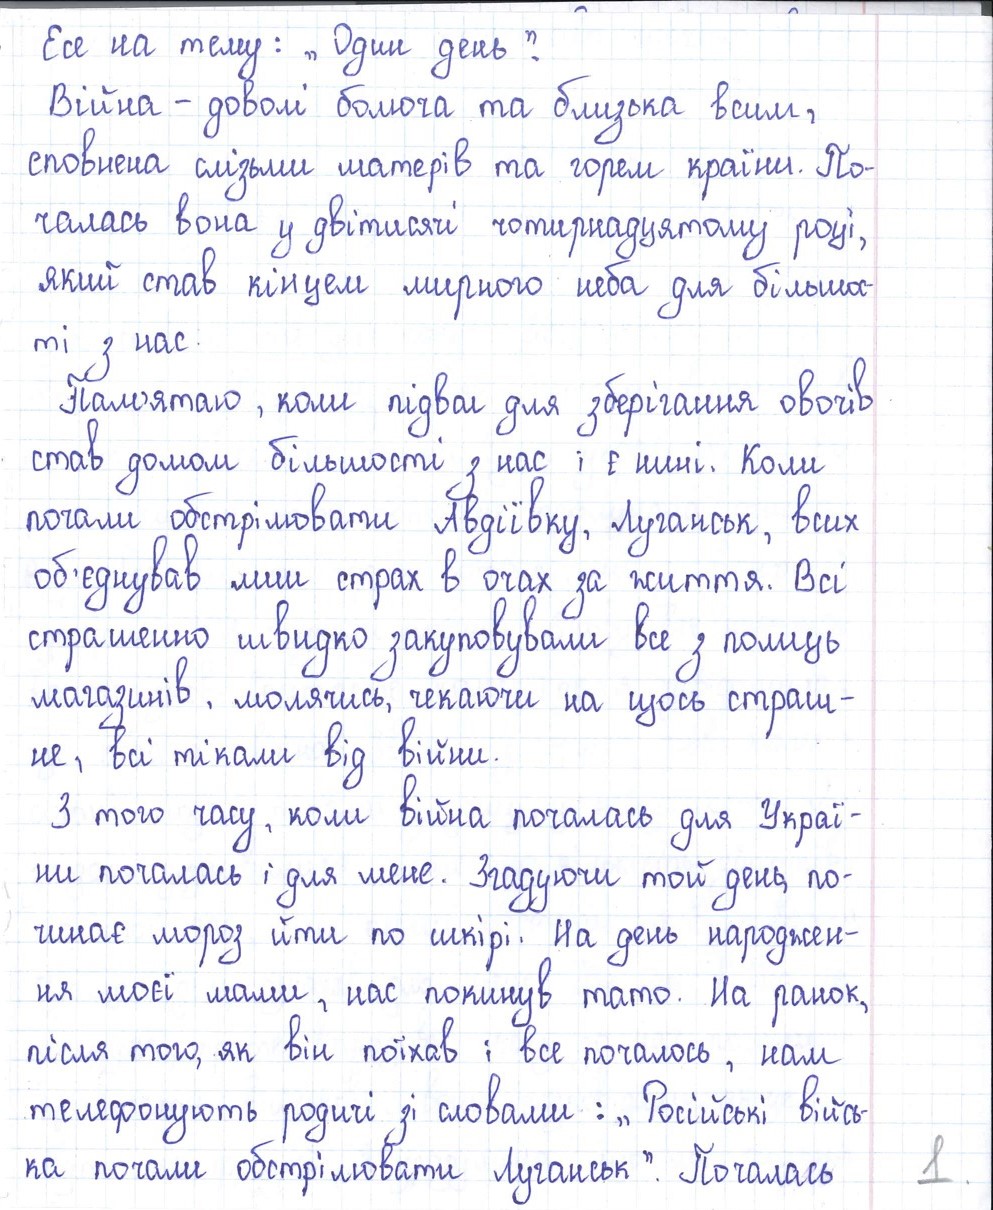 Есе на тему: „ Один день ".
Війна – доволі болюча та близька всим,
сповнена слізьми матерів та горем країни. По-
чалась вона у двітисячі чотирнадцятому році,
який став кінцем мирного неба для більшос-
ті з нас.
Пам'ятаю, коли підвал для зберігання овочів
став домом більшості з нас і є нині. Коли
почали обстрілювати Авдіївку, Луганськ, всих
об'єднував лиш страх в очах за життя. Всі
страшенно швидко закуповували все з полиць
магазинів, молячись, чекаючи на щось страш-
не, всі тікали від війни.
З того часу, коли війна почалась для Украї-
ни почалась і для мене. Згадуючи той день, по-
чинає мороз йти по шкірі. На день народжен-
ня моєї мами, нас покинув тато. На ранок,
після того, як він поїхав і все почалось, нам
телефонують родичі зі словами: „ Російські війсь-
ка почали обстрілювати Луганськ". Почалась
1